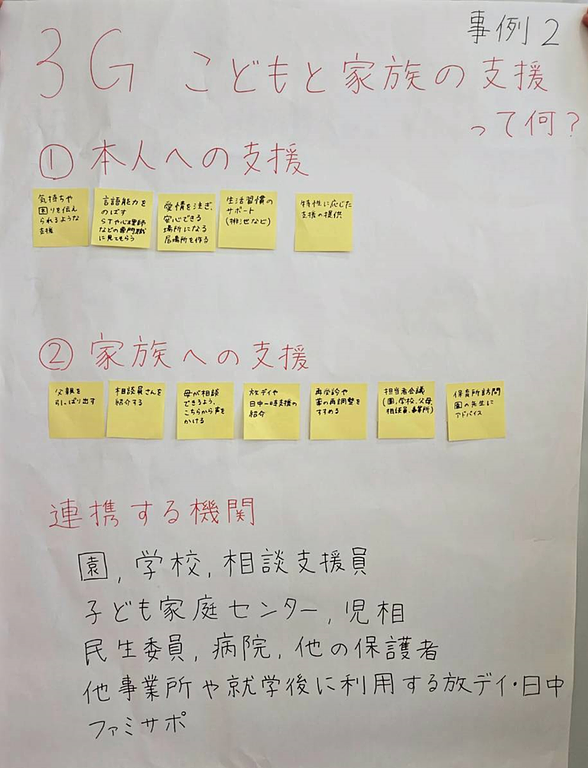 事例2
3G こどもと家族の支援
って何?
① 本人への支援
気持ちや
困りを伝え
られるような
支援
言語能力を
のばす
STや心理師
などの専門職
に見てもらう
愛情を注ぎ、
安心できる
場所になる
居場所を作る
生活習慣の
サポート
(排泄など)
特性に応じた
支援の提供
② 家族への支援
父親を
引っぱり出す
相談員さんを
紹介する
母が相談
できるよう、
こちらから声を
かける
放デイや
日中一時支援の
紹介
再受診や
薬の再調整を
すすめる
担当者会議
(園、学校、父母、
相談員、事業所)
保育所訪問
園の先生に
アドバイス
連携する機関
園, 学校, 相談支援員
子ども家庭センター, 児相
民生委員, 病院, 他の保護者
他事業所や就学後に利用する放デイ・日中
ファミサポ